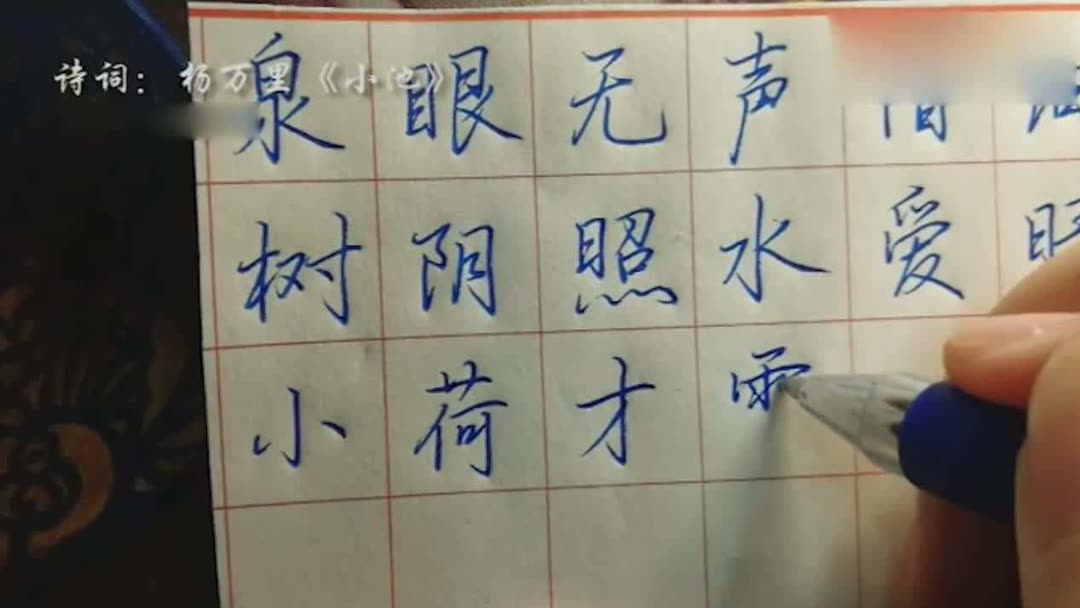 诗词：杨万里《小池》
泉眼无声惜
树阴照水爱
小荷才